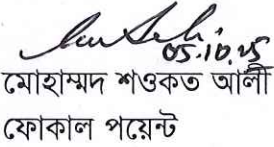 05.10.25
মোহাম্মদ শওকত আলী
ফোকাল পয়েন্ট